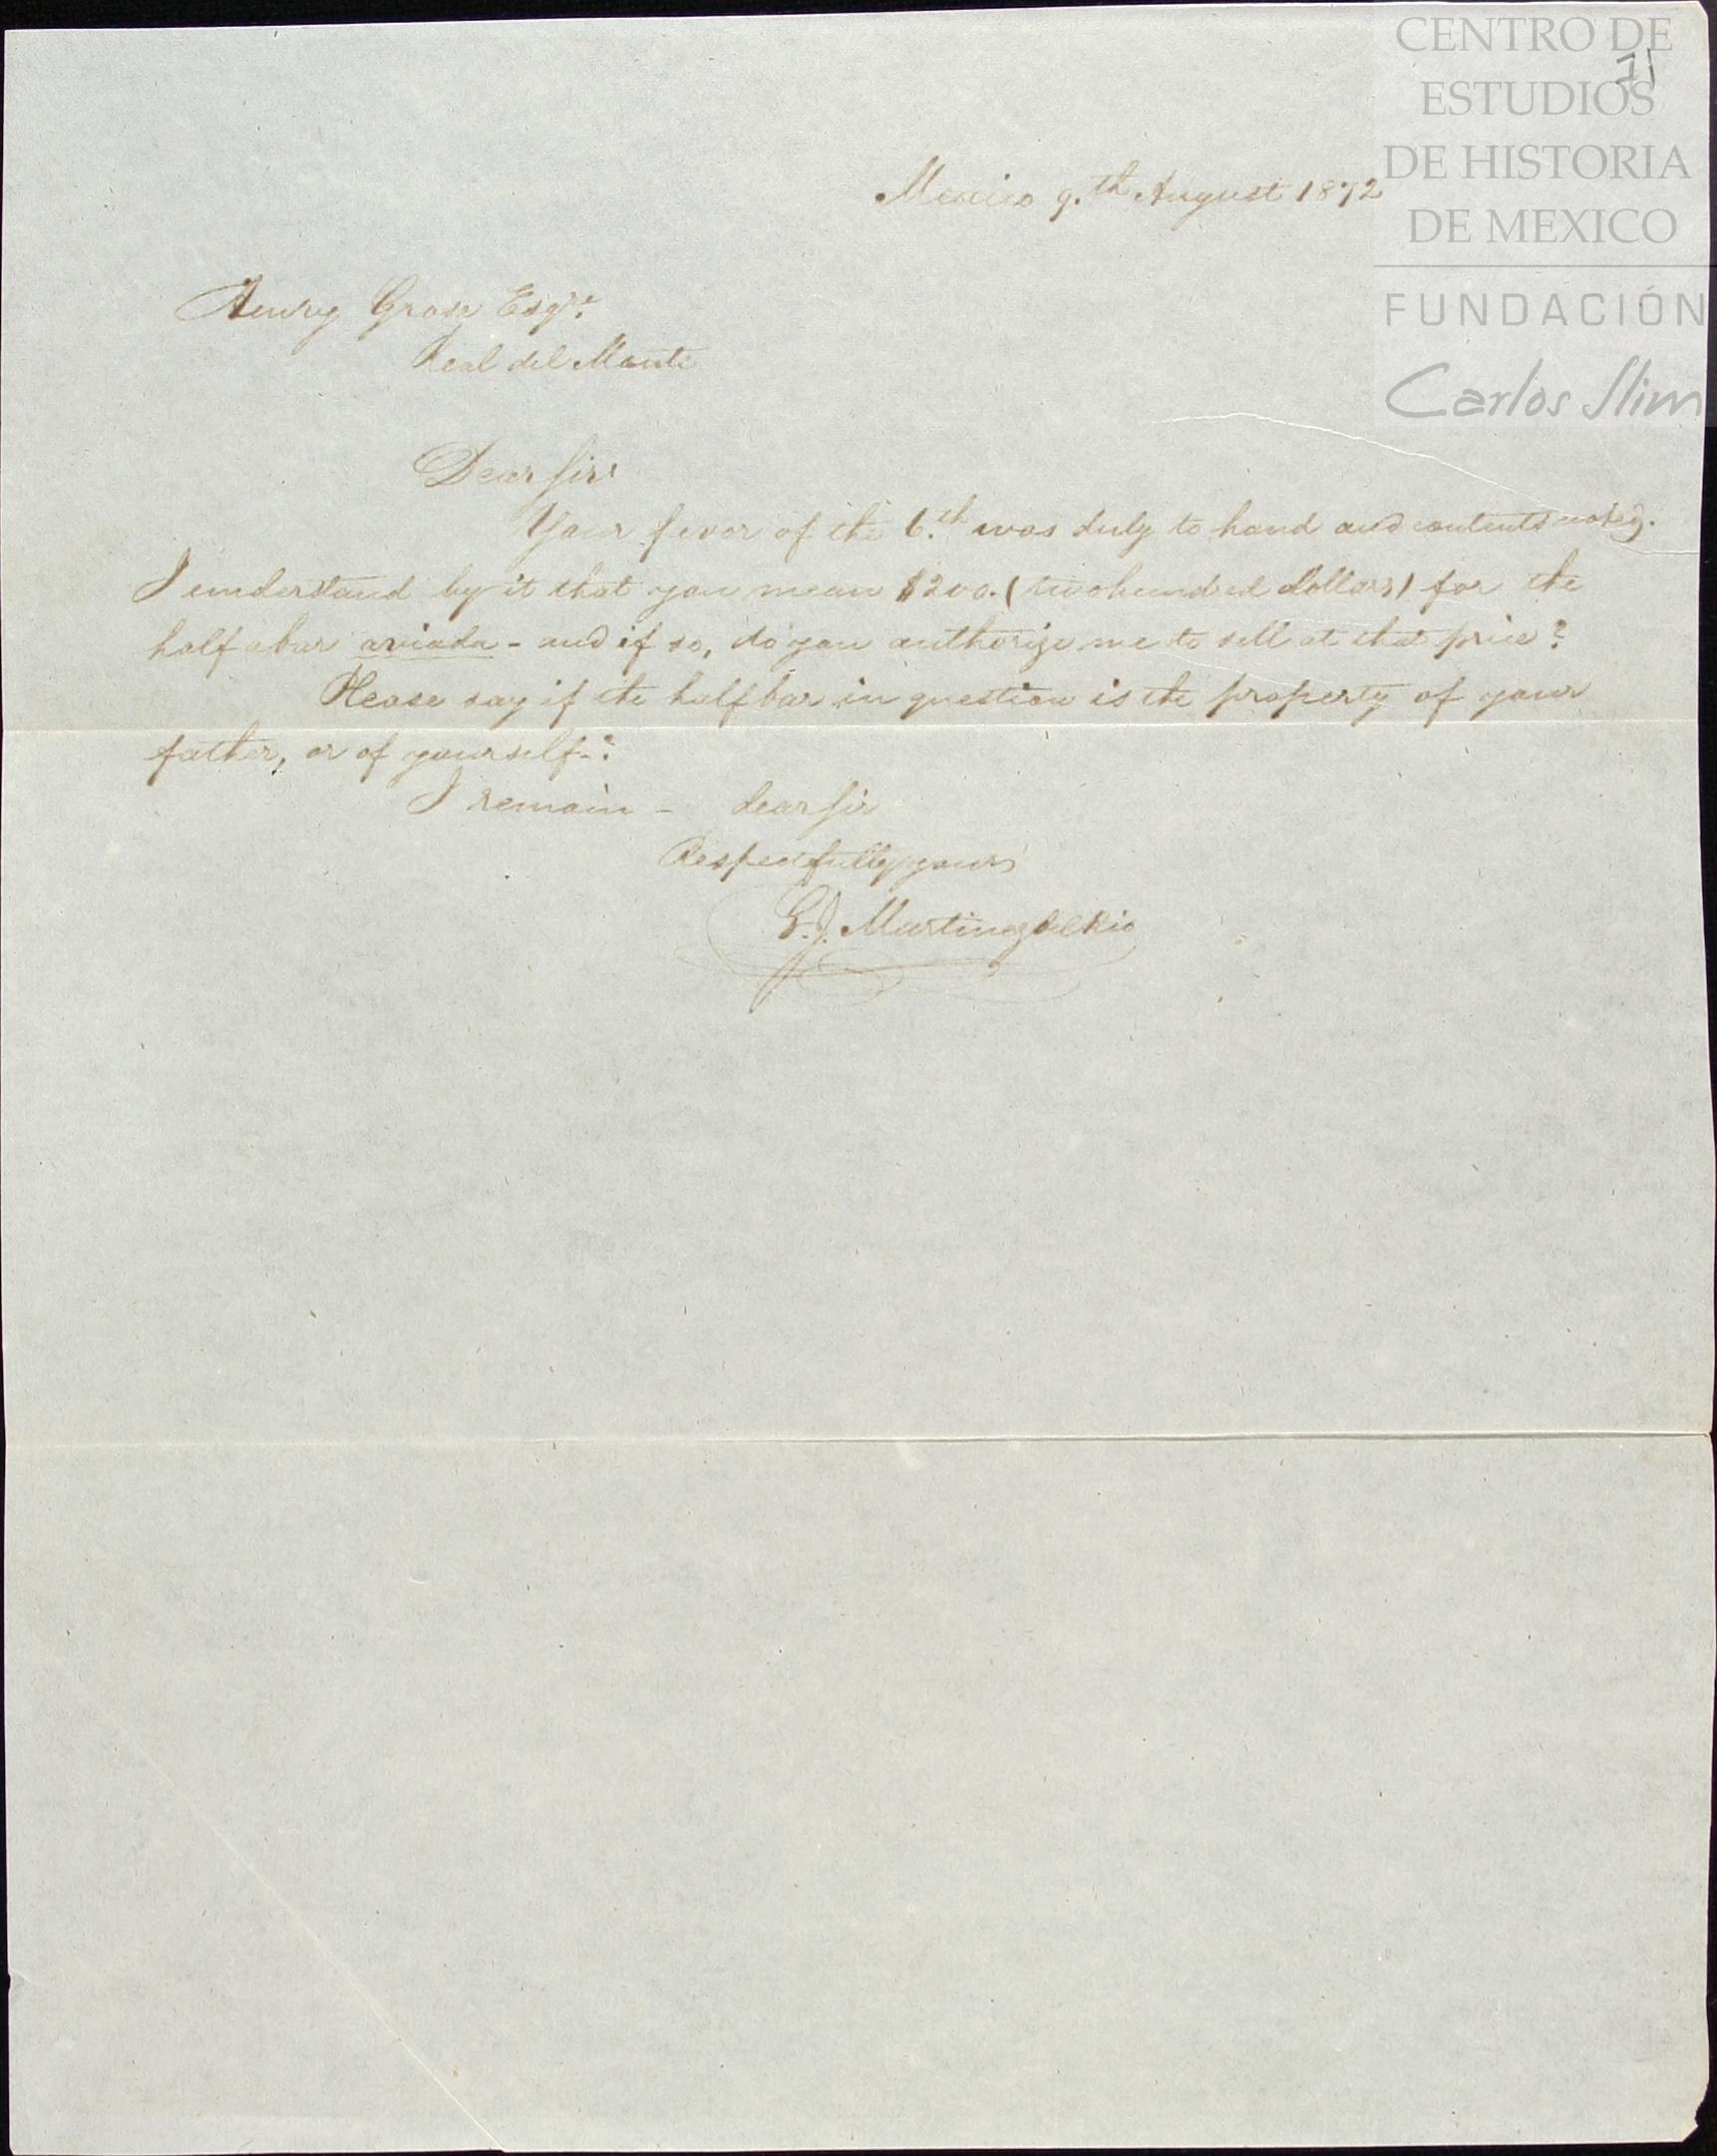 CENTRO DE
ESTUDIOS
DE HISTORIA
DE MEXICO
FUNDACIÓN
Carlos Slim
71
Mexico 9.th August 1872
Henry Grose Esqre.
Real del Monte
Dear Sir
Your favor of the 6.th was duly to hand and contents noted.
I understand by it that you mean $200. (two hundred dollars) for the
half a bar aviada - and if so, do you authorize me to sell at that price?
Please say if the half bar in question is the property of your
father, or of yourself-?
I remain - dear Sir
Respectfully yours
G. J. Martinez del Rio